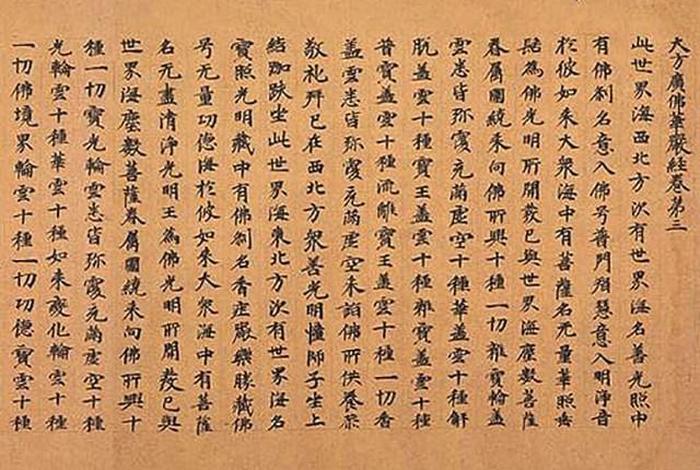 大方廣佛華嚴經卷第三
此世界海西北方次有世界海名善光照中
有佛剎名意入佛号普門智慧意入明淨音
於彼如来大衆海中有菩薩名无量華照垂
髻為佛光明所開發已與世界海塵數菩薩
眷屬圍繞来向佛所興十種一切雜寶輪蓋
雲悉皆弥覆充滿虛空十種華蓋雲十種解
脫蓋雲十種寶王蓋雲十種雜寶蓋雲十種
普寶蓋雲十種流離寶王蓋雲十種一切香
蓋雲悉皆弥覆充滿虛空来詣佛所供養恭
敬礼拜已在西北方衆善光明憧師子坐上
結跏趺坐此世界海東北方次有世界海名
寶照光明藏中有佛剎名香庄嚴樂勝藏佛
号无量功德海於彼如来大衆海中有菩薩
名无盡清淨光明王為佛光明所開發已與
世界海塵數菩薩眷屬圍繞来向佛所興十
種一切寶光輪雲悉皆弥覆充滿虛空十種
光輪雲十種華雲十種如来變化輪雲十種
一切佛境界輪雲十種一切功德寶雲十種